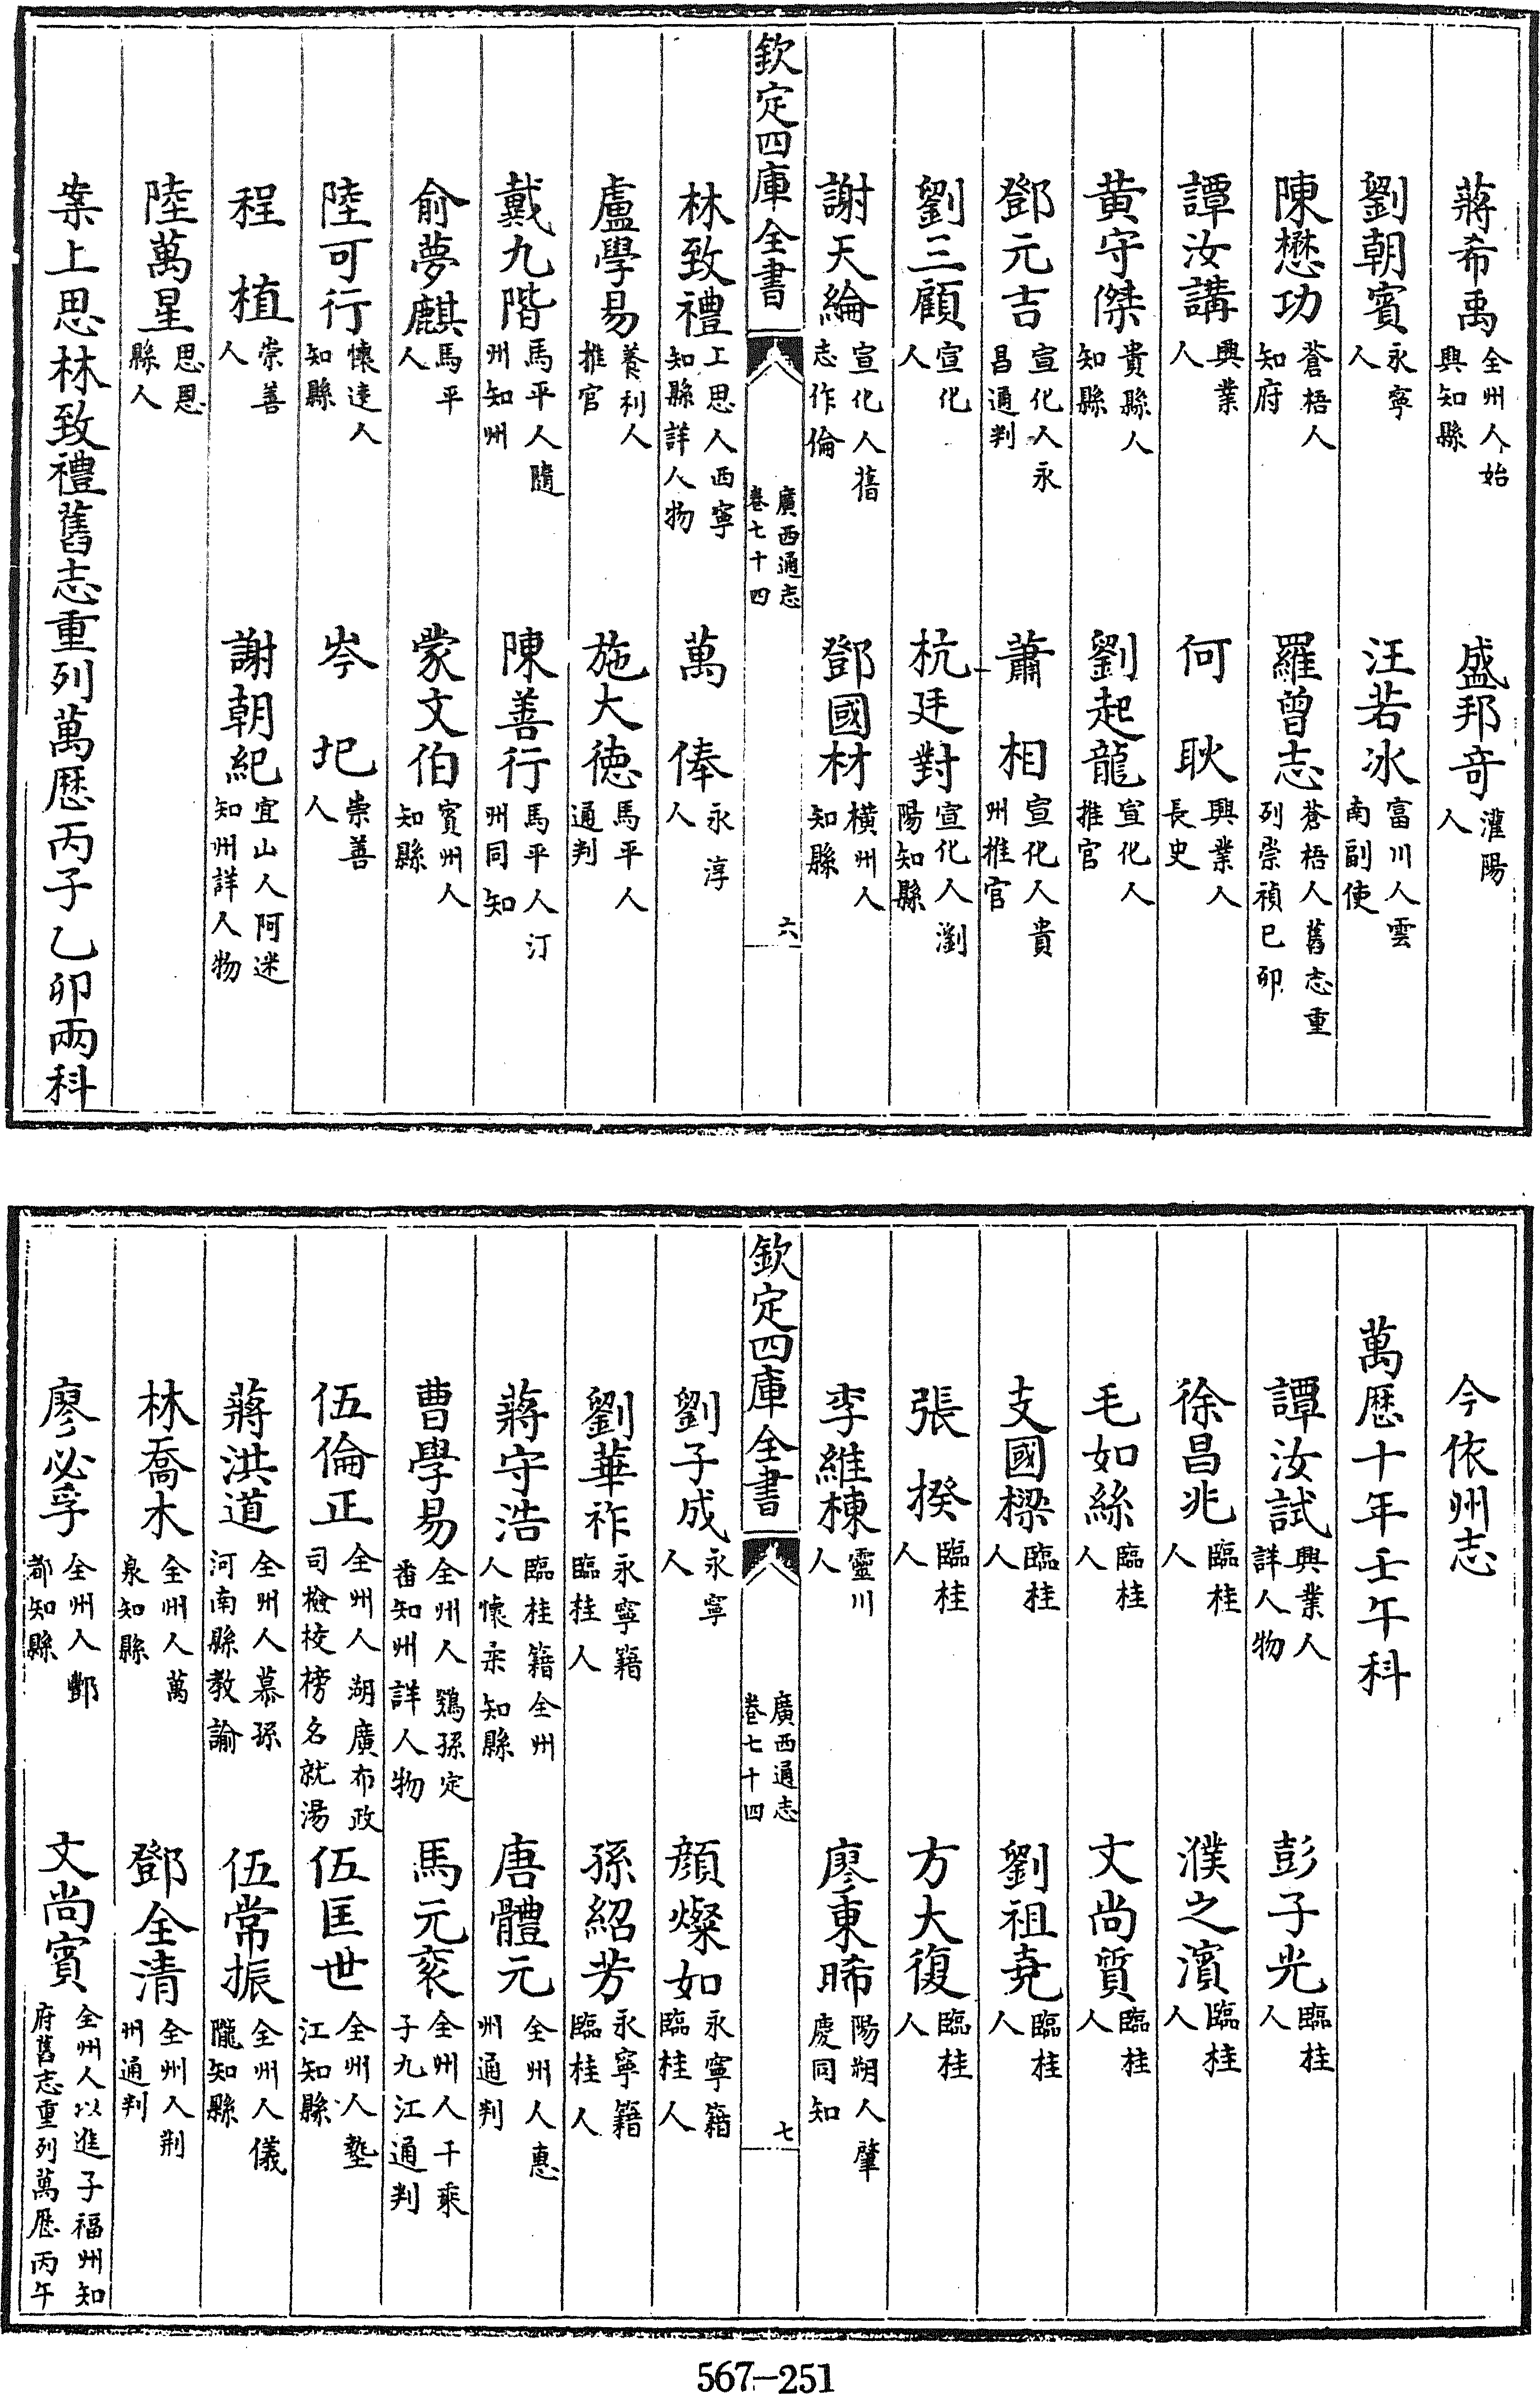 蔣希禹全州人始興知縣　盛邦竒灌陽人
劉朝賓永寧人　汪若冰富川人雲南副使
陳懋功蒼梧人知府　羅曾志蒼梧人舊志重列崇禎已卯
譚汝講興業人　何耿興業人長史
黄守傑貴縣人知縣　劉起龍宣化人推官
鄧元吉宣化人永昌通判　蕭相宣化人貴州推官
劉三顧宣化人　杭廷對宣化人瀏陽知縣
謝天綸宣化人舊志作倫　鄧國材横州人知縣
欽定四庫全書　廣西通志卷七十四　六
林致禮上思人西寧知縣詳人物　萬俸永淳人
盧學易養利人推官　施大徳馬平人通判
戴九階馬平人隨州知州　陳善行馬平人汀州同知
俞夢麒馬平人　蒙文伯賓州人知縣
陸可行懷逺人知縣　岑圯崇善人
程植崇善人　謝朝紀宜山人阿迷知州詳人物
陸萬星思恩縣人
案上思林致禮舊志重列萬厯丙子乙卯兩科
今依州志
萬厯十年壬午科
譚汝試興業人詳人物　彭子光臨桂人
徐昌兆臨桂人　濮之濱臨桂人
毛如絲臨桂人　文尚質臨桂人
支國樑臨桂人　劉祖堯臨桂人
張揆臨桂人　方大復臨桂人
李維棟靈川人　廖東晞陽朔人肇慶同知
欽定四庫全書　廣西通志卷七十四　七
劉子成永寧人　顔燦如永寧籍臨桂人
劉華祚永寧籍臨桂人　孫紹芳永寧籍臨桂人
蔣守浩臨桂籍全州人懷柔知縣　唐體元全州人惠州通判
曹學易全州人鶚孫定番知州詳人物　馬元衮全州人千乘子九江通判
伍倫正全州人湖廣布政司檢校榜名就湯　伍匡世全州人墊江知縣
蔣洪道全州人慕孫河南縣教諭　伍常振全州人儀隴知縣
林喬木全州人萬泉知縣　鄧全清全州人荆州通判
廖必孚全州人酆都知縣　文尚賓全州人以進子福州知府舊志重列萬厯丙午
567-251